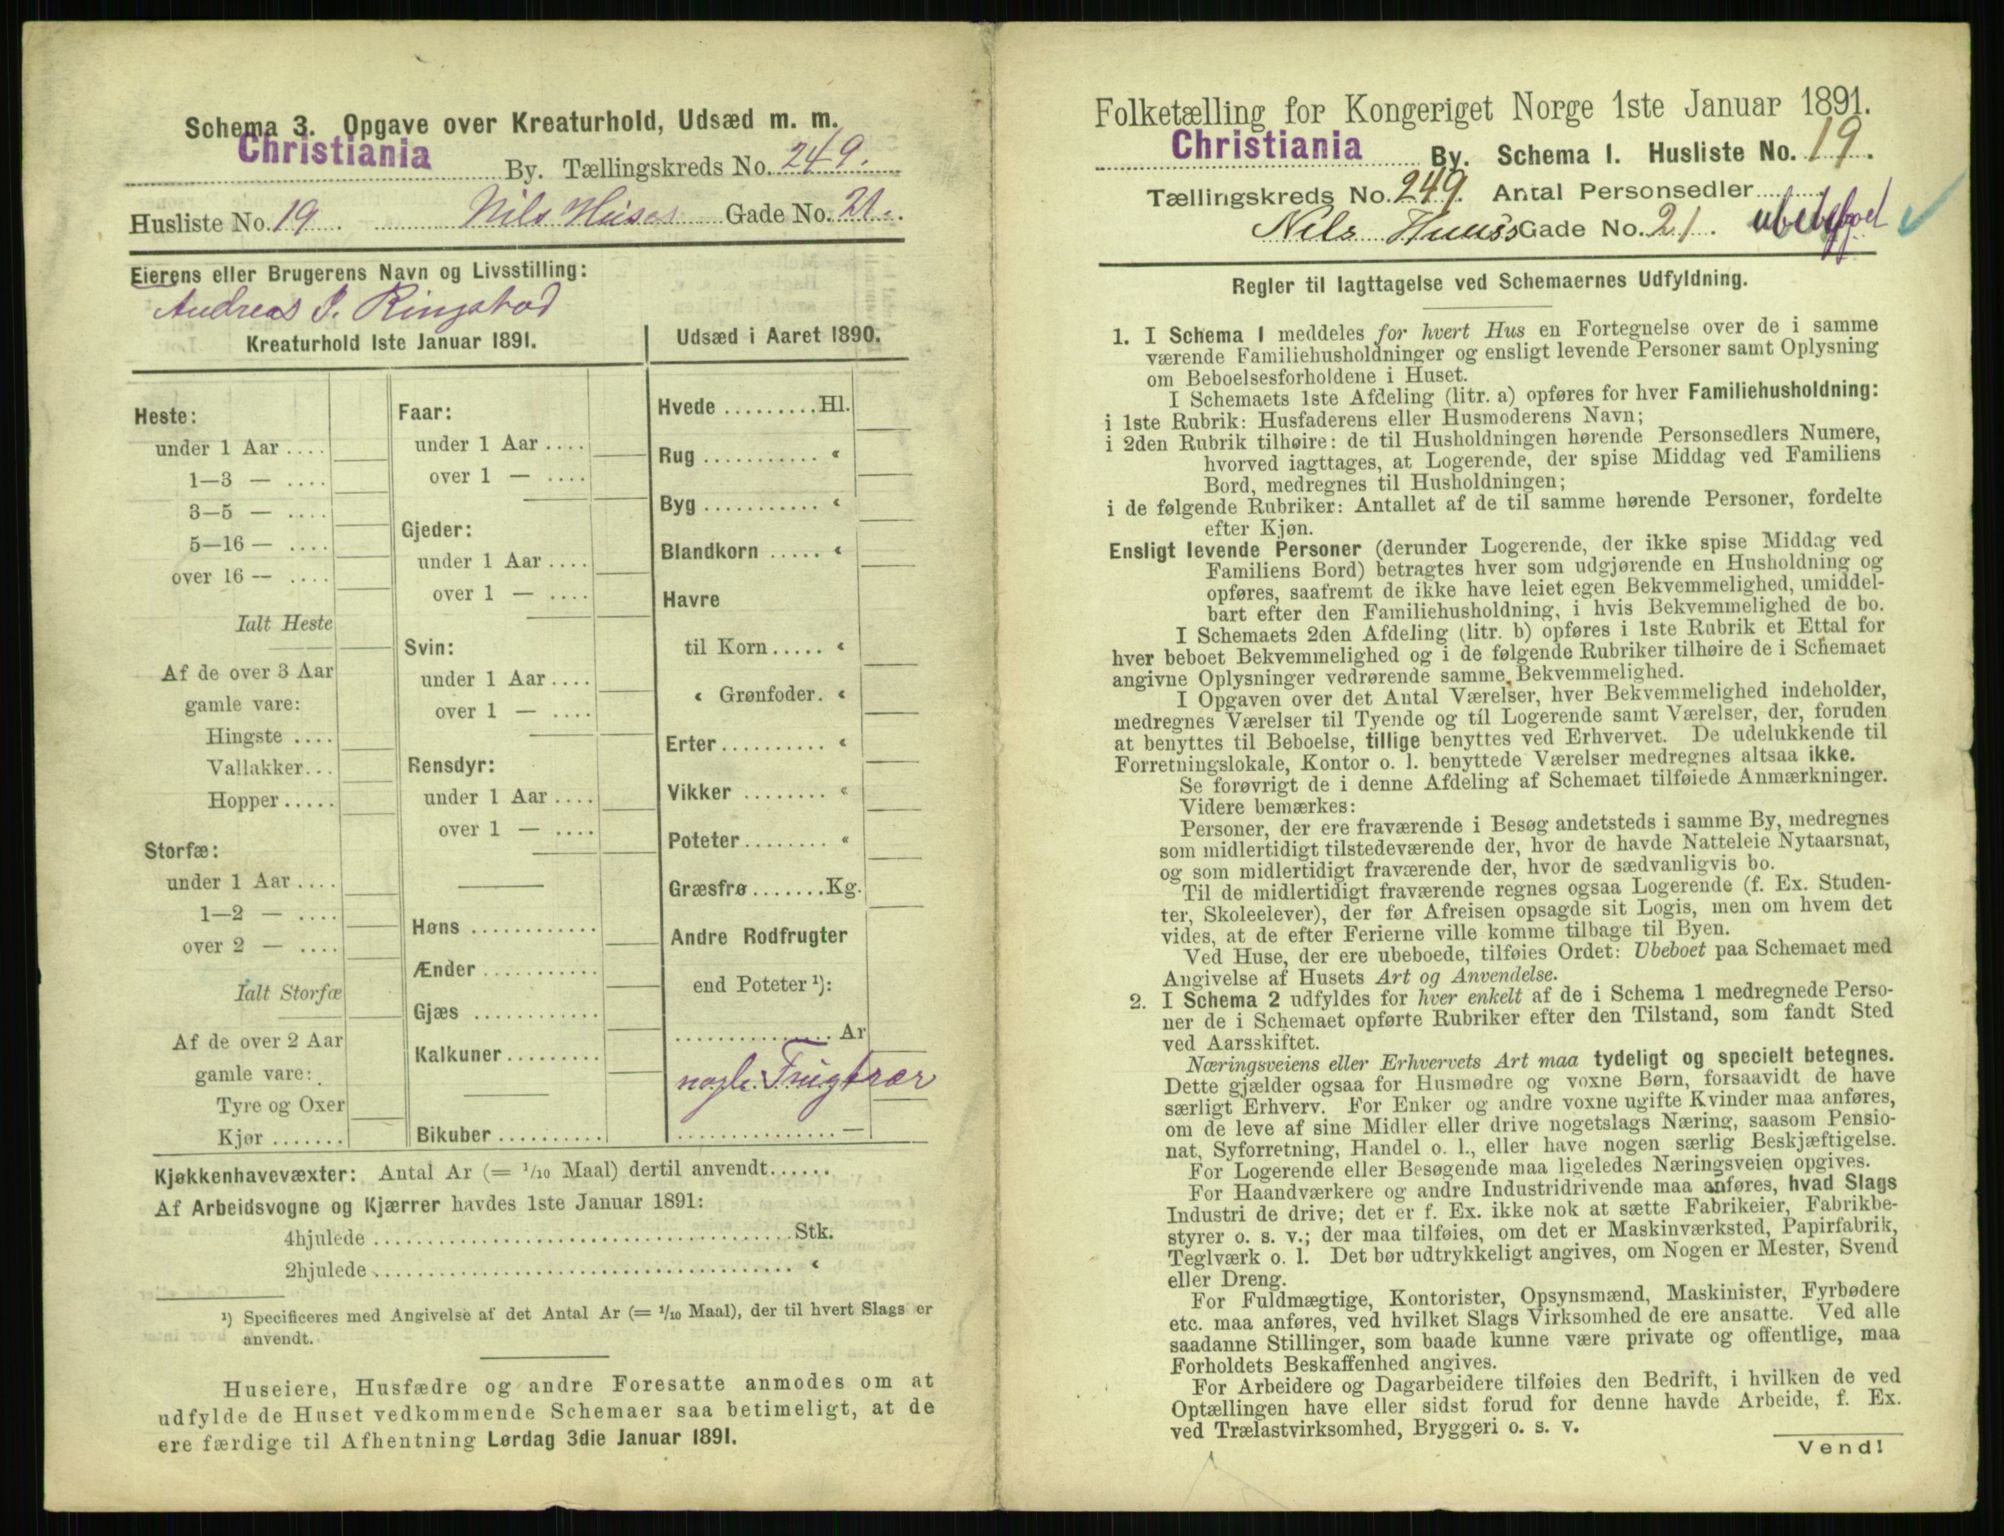 Schema 3. Opgave over Kreaturhold, Udsæd m. m.
Christiania By. Tællingskreds No. 249.
Husliste No. 19. Nils Huses Gade No. 21.
Eierens eller Brugerens Navn og Livsstilling:
Andreas P. Ringstad
Kreaturhold 1ste Januar 1891.
Heste:
under 1 Aar ....
1—3 — ....
3—5 — ....
5—16 — ....
over 16 — ....
Ialt Heste
Af de over 3 Aar
gamle vare:
Hingste ....
Vallakker...
Hopper.....
Storfæ:
under 1 Aar ....
1—2 — ....
over 2 — ....
Ialt Storfæ
Af de over 2 Aar
gamle vare:
Tyre og Oxer
Kjør .......
Faar:
under 1 Aar ....
over 1 — ....
Gjeder:
under 1 Aar ....
over 1 — ....
Svin:
under 1 Aar ....
over 1 — ....
Rensdyr:
under 1 Aar ....
over 1 — ....
Høns ............
Ænder ..........
Gjæs ............
Kalkuner.........
Bikuber ..........
Udsæd i Aaret 1890.
Hvede .........Hl.
Rug ........... “
Byg ........... “
Blandkorn ..... “
Havre
til Korn ..... “
“ Grønfoder. “
Erter.......... “
Vikker ........ “
Poteter........ “
Græsfrø.......Kg.
Andre Rodfrugter
end Poteter ¹):
............... Ar
nogle Frugtrær
............... —
Kjøkkenhavevæxter: Antal Ar (= 1/10 Maal) dertil anvendt......
Af Arbeidsvogne og Kjærrer havdes 1ste Januar 1891:
4hjulede ........................................Stk.
2hjulede ........................................ “
¹) Specificeres med Angivelse af det Antal Ar (= 1/10 Maal), der til hvert Slags er
anvendt.
Huseiere, Husfædre og andre Foresatte anmodes om at
udfylde de Huset vedkommende Schemaer saa betimeligt, at de
ere færdige til Afhentning Lørdag 3die Januar 1891.
Folketælling for Kongeriget Norge 1ste Januar 1891.
Christiania By. Schema 1. Husliste No. 19.
Tællingskreds No. 249. Antal Personsedler
Nils Huus's Gade No. 21. ubeboet
Regler til Iagttagelse ved Schemaernes Udfyldning.
1. I Schema 1 meddeles for hvert Hus en Fortegnelse over de i samme
værende Familiehusholdninger og ensligt levende Personer samt Oplysning
om Beboelsesforholdene i Huset.
I Schemaets 1ste Afdeling (litr. a) opføres for hver Familiehusholdning:
i 1ste Rubrik: Husfaderens eller Husmoderens Navn;
i 2den Rubrik tilhøire: de til Husholdningen hørende Personsedlers Numere,
hvorved iagttages, at Logerende, der spise Middag ved Familiens
Bord, medregnes til Husholdningen;
i de følgende Rubriker: Antallet af de til samme hørende Personer, fordelte
efter Kjøn.
Ensligt levende Personer (derunder Logerende, der ikke spise Middag ved
Familiens Bord) betragtes hver som udgjørende en Husholdning og
opføres, saafremt de ikke have leiet egen Bekvemmelighed, umiddel-
bart efter den Familiehusholdning, i hvis Bekvemmelighed de bo.
I Schemaets 2den Afdeling (litr. b) opføres i 1ste Rubrik et Ettal for
hver beboet Bekvemmelighed og i de følgende Rubriker tilhøire de i Schemaet
angivne Oplysninger vedrørende samme Bekvemmelighed.
I Opgaven over det Antal Værelser, hver Bekvemmelighed indeholder,
medregnes Værelser til Tyende og til Logerende samt Værelser, der, foruden
at benyttes til Beboelse, tillige benyttes ved Erhvervet. De udelukkende til
Forretningslokale, Kontor o. l. benyttede Værelser medregnes altsaa ikke.
Se forøvrigt de i denne Afdeling af Schemaet tilføiede Anmærkninger.
Videre bemærkes:
Personer, der ere fraværende i Besøg andetsteds i samme By, medregnes
som midlertidigt tilstedeværende der, hvor de havde Natteleie Nytaarsnat,
og som midlertidigt fraværende der, hvor de sædvanligvis bo.
Til de midlertidigt fraværende regnes ogsaa Logerende (f. Ex. Studen-
ter, Skoleelever), der før Afreisen opsagde sit Logis, men om hvem det
vides, at de efter Ferierne ville komme tilbage til Byen.
Ved Huse, der ere ubeboede, tilføies Ordet: Ubeboet paa Schemaet med
Angivelse af Husets Art og Anvendelse.
2. I Schema 2 udfyldes for hver enkelt af de i Schema 1 medregnede Perso-
ner de i Schemaet opførte Rubriker efter den Tilstand, som fandt Sted
ved Aarsskiftet.
Næringsveiens eller Erhvervets Art maa tydeligt og specielt betegnes.
Dette gjælder ogsaa for Husmødre og voxne Børn, forsaavidt de have
særligt Erhverv. For Enker og andre voxne ugifte Kvinder maa anføres,
om de leve af sine Midler eller drive nogetslags Næring, saasom Pensio-
nat, Syforretning, Handel o. l., eller have nogen særlig Beskjæftigelse.
For Logerende eller Besøgende maa ligeledes Næringsveien opgives.
For Haandværkere og andre Industridrivende maa anføres, hvad Slags
Industri de drive; det er f. Ex. ikke nok at sætte Fabrikeier, Fabrikbe-
styrer o. s. v.; der maa tilføies, om det er Maskinværksted, Papirfabrik,
Teglværk o. l. Det bør udtrykkeligt angives, om Nogen er Mester, Svend
eller Dreng.
For Fuldmægtige, Kontorister, Opsynsmænd, Maskinister, Fyrbødere
etc. maa anføres, ved hvilket Slags Virksomhed de ere ansatte. Ved alle
saadanne Stillinger, som baade kunne være private og offentlige, maa
Forholdets Beskaffenhed angives.
For Arbeidere og Dagarbeidere tilføies den Bedrift, i hvilken de ved
Optællingen have eller sidst forud for denne havde Arbeide, f. Ex.
ved Trælastvirksomhed, Bryggeri o. s. v.
Vend!